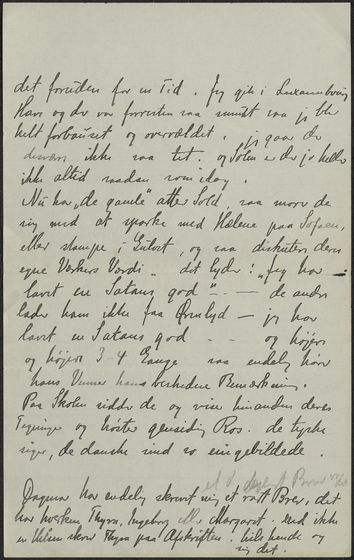 det foruden for en Tid. Jeg gik i Luxembourg
Have og der var forresten saa smukt saa jeg blev
helt forbauset og overvældet. jeg gaar der
desværre ikke saa tit. og Solen er der jo heller
ikke altid saadan som idag.
Nu har „de gamle" atter Sold, saa morer de
sig med at sparke med Hælene paa Sofaen,
eller stampe i Gulvet, og saa diskutere deres
egne Værkers Værdi. det lyder: „Jeg har
lavet en Satans god" — — de andre
lader ham ikke faa Ørenlyd — jeg har
lavet en Satans god — — og højere
og højere 3-4 Gange saa endelig hører
hans Venner hans beskedne Bemærkning.
Paa Skolen sidder de og viser hinanden deres
Tegninger og høster gensidig Ros. de tyske
siger, de danske sind so eingebildede.
Dagmar har endelig skrevet mig et rart Brev, det
har hverken Thyra, Ingeborg eller Margaret. end ikke
en Hilsen skrev Thyra paa Afskriften. hils hende og
sig det.